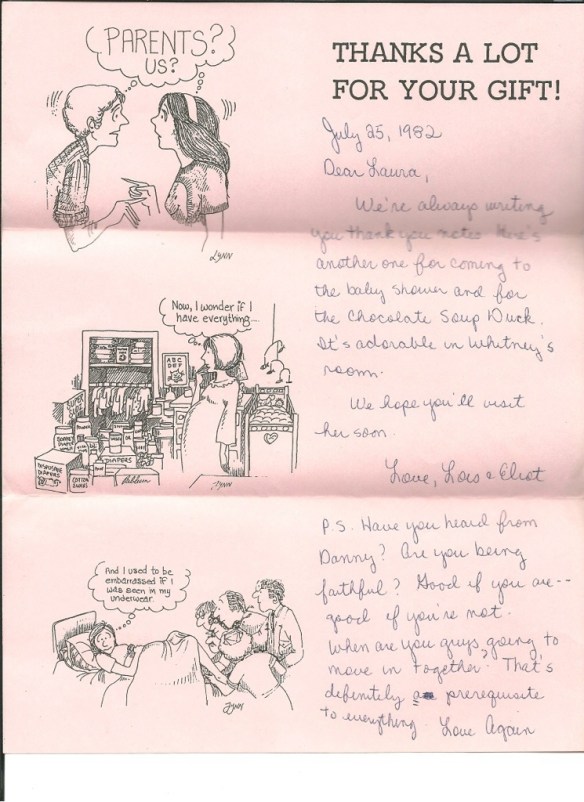 PARENTS?
US?
LYNN
Now, I wonder if I
have everything...
ABC
DEF
DIAPERS
DISPOSABLE
DIAPERS
COTTON
SWABS
LYNN
And I used to be
embarrassed if I
was seen in my
underwear
LYNN
THANKS A LOT
FOR YOUR GIFT!
July 25, 1982
Dear Laura,
We're always writing
you thank you notes. Here's
another one for coming to
the baby shower and for
the Chocolate Soup Duck.
It's adorable in Whitney's
room.
We hope you'll visit
her soon.
Love, Lois & Eliot
P.S. Have you heard from
Danny? Are you being
faithful? Good if you are--
good if you're not.
When are you guys going to
move in together? That's
definitely a prerequisite
to everything. Love Again